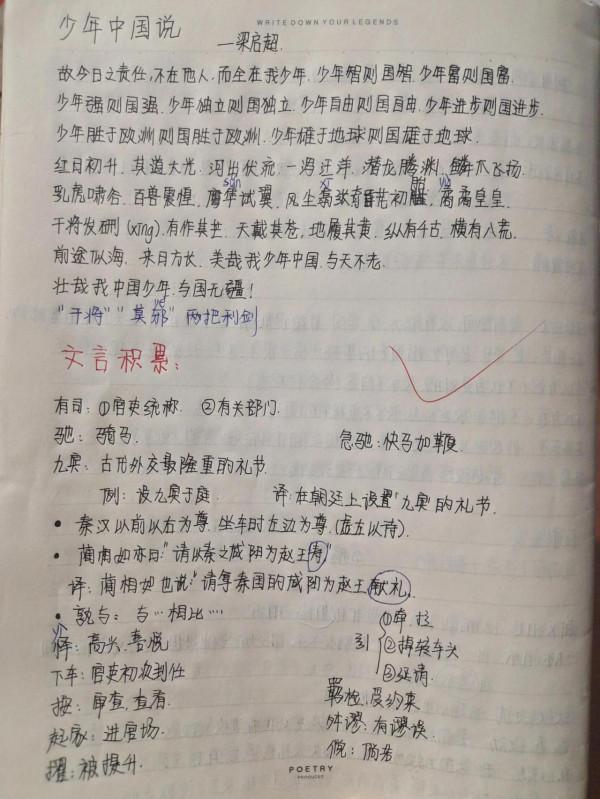 WRITE DOWN YOUR LEGENDS
少年中国说
—梁启超.
故今日之责任,不在他人,而全在我少年.少年智则国智.少年富则国富.
少年强则国强.少年独立则国独立.少年自由则国自由.少年进步则国进步.
少年胜于欧洲则国胜于欧洲.少年雄于地球则国雄于地球.
红日初升.其道大光.河出伏流.一泻汪洋.潜龙腾渊.鳞爪飞扬.
乳虎啸谷.百兽震惶.鹰隼试翼.风尘翕张.奇花初胎.矞矞皇皇.
干将发硎(xíng).有作其芒.天戴其苍,地履其黄.纵有千古.横有八荒.
前途似海.来日方长.美哉我少年中国.与天不老.
壮哉我中国少年.与国无疆!
"干将" "莫邪" 两把利剑.
文言积累:
有司: ①官吏统称. ②有关部门.
驰: 骑马. 急驰:快马加鞭.
九宾: 古代外交最隆重的礼节.
例: 设九宾于庭. 译:在朝廷上设置了九宾的礼节.
• 秦汉以前以左为尊.坐车时左边为尊.(虚左以待).
• 蔺相如亦曰"请以秦之咸阳为赵王寿"
译:蔺相如也说:"请将秦国的咸阳为赵王献礼.
• 孰与: 与…相比…. ①牵.拉
怿: 高兴.喜悦 引 ②掉转车头
下车: 官吏初次到任 ③延请.
按: 审查,查看. 羁检:受约束
起家: 进官场. 舛谬:有谬误.
擢:被提升. 倘:倘若
POETRY